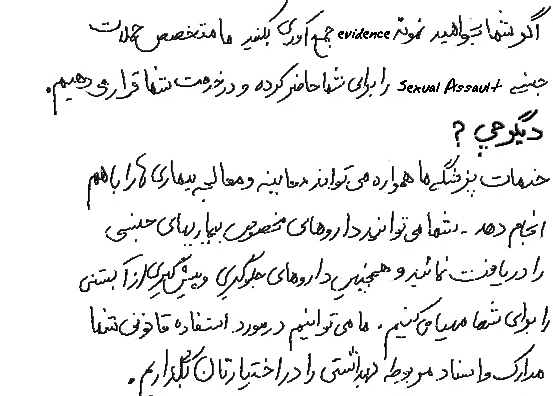 اگر شما بخواهید نمونه evidence جمع آوری بکنید ما متخصص حملات
جنسی Sexual Assault را برای شما حاضر کرده و در خدمت شما قرار می دهیم.
دیگر چی ؟
خدمات پزشکی ما همواره می تواند معاینه و معالجه بیماری ها را با هم
انجام دهد . شما می توانید داروهای مخصوص بیماریهای جنسی
را دریافت نمائید و همچنین داروهای جلوگیری و پیش گیری از آبستنی
را برای شما مهیا می کنیم . ما می توانیم در مورد استفاده قانونی شما
مدارک و اسناد مربوطه بهداشتی را در اختیارتان بگذاریم .